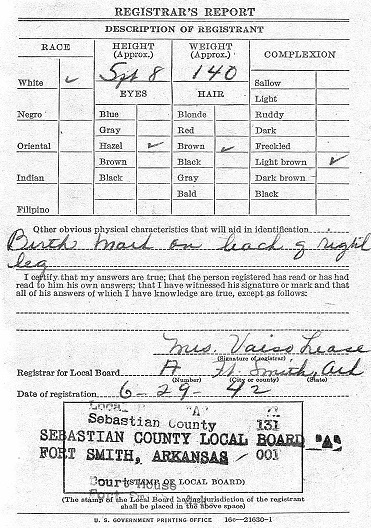 REGISTRAR'S REPORT
DESCRIPTION OF REGISTRANT
RACE
HEIGHT
(Approx.)
WEIGHT
(Approx.)
COMPLEXION
White ✓
5 ft 8
140
Sallow
EYES
HAIR
Light
Negro
Blue
Blonde
Ruddy
Gray
Red
Dark
Oriental
Hazel ✓
Brown ✓
Freckled
Brown
Black
Light brown ✓
Indian
Black
Gray
Dark brown
Bald
Black
Filipino
Other obvious physical characteristics that will aid in identification
Birth mark on back of right
leg
I certify that my answers are true; that the person registered has read or has had
read to him his own answers; that I have witnessed his signature or mark and that
all of his answers of which I have knowledge are true, except as follows:
Mrs. Lease
(Signature of registrar)
Registrar for Local Board A Ft. Smith, Ark
(Number) (City or county) (State)
Date of registration 6-29-42
Local "A"
Sebastian County 131
SEBASTIAN COUNTY LOCAL BOARD "A"
FORT SMITH, ARKANSAS 001
Court House
(STAMP OF LOCAL BOARD)
(The stamp of the Local Board having jurisdiction of the registrant
shall be placed in the above space)
U. S. GOVERNMENT PRINTING OFFICE 16—21630-1